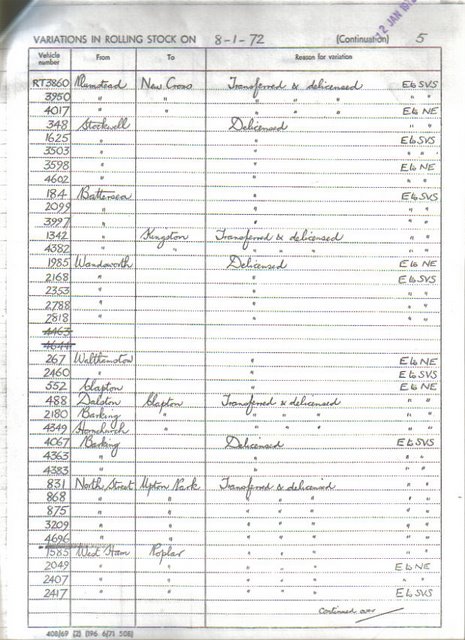 12 JAN 1972
VARIATIONS IN ROLLING STOCK ON 8-1-72 (Continuation) 5
Vehicle number From To Reason for variation
RT3860 Plumstead New Cross Transferred & delicensed E to SVS
3950 " " " " " " "
4017 " " " " " E to NE
348 Stockwell Delicensed " "
1625 " " E to SVS
3503 " " " "
3598 " " E to NE
4602 " " " "
184 Battersea " E to SVS
2099 " " " "
3997 " " " "
1342 " Kingston Transferred & delicensed " "
4382 " " " " " " "
1985 Wandsworth Delicensed E to NE
2168 " " E to SVS
2353 " " " "
2788 " " " "
2818 " " " "
4463
4644
267 Walthamstow " E to NE
2460 " " E to SVS
552 Clapton " E to NE
488 Dalston Clapton Transferred & delicensed " "
2180 Barking " " " " " "
4349 Hornchurch " " " " " "
4067 Barking Delicensed E to SVS
4363 " " " "
4383 " " " "
831 North Street Upton Park Transferred & delicensed " "
868 " " " " " " "
875 " " " " " " "
3209 " " " " " " "
4696 " " " " " " "
1585 West Ham Poplar " " " " "
2049 " " " " " E to NE
2407 " " " " " " "
2417 " " " " " E to SVS
Continued over
408/69 (2) (196 6/71 50B)